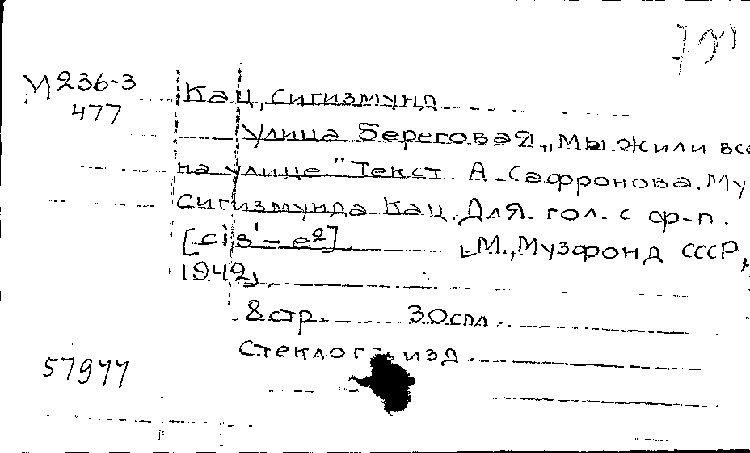 М 236-3
477
Кац, Сигизмунд
Улица Береговая „Мы жили все
на улице" Текст А. Сафронова. Му
Сигизмунда Кац. Для гол. с ф-п.
[cis¹ – e²] М., Музфонд СССР,
1942,
8 стр. 30 см
Стеклогр. изд.
57977